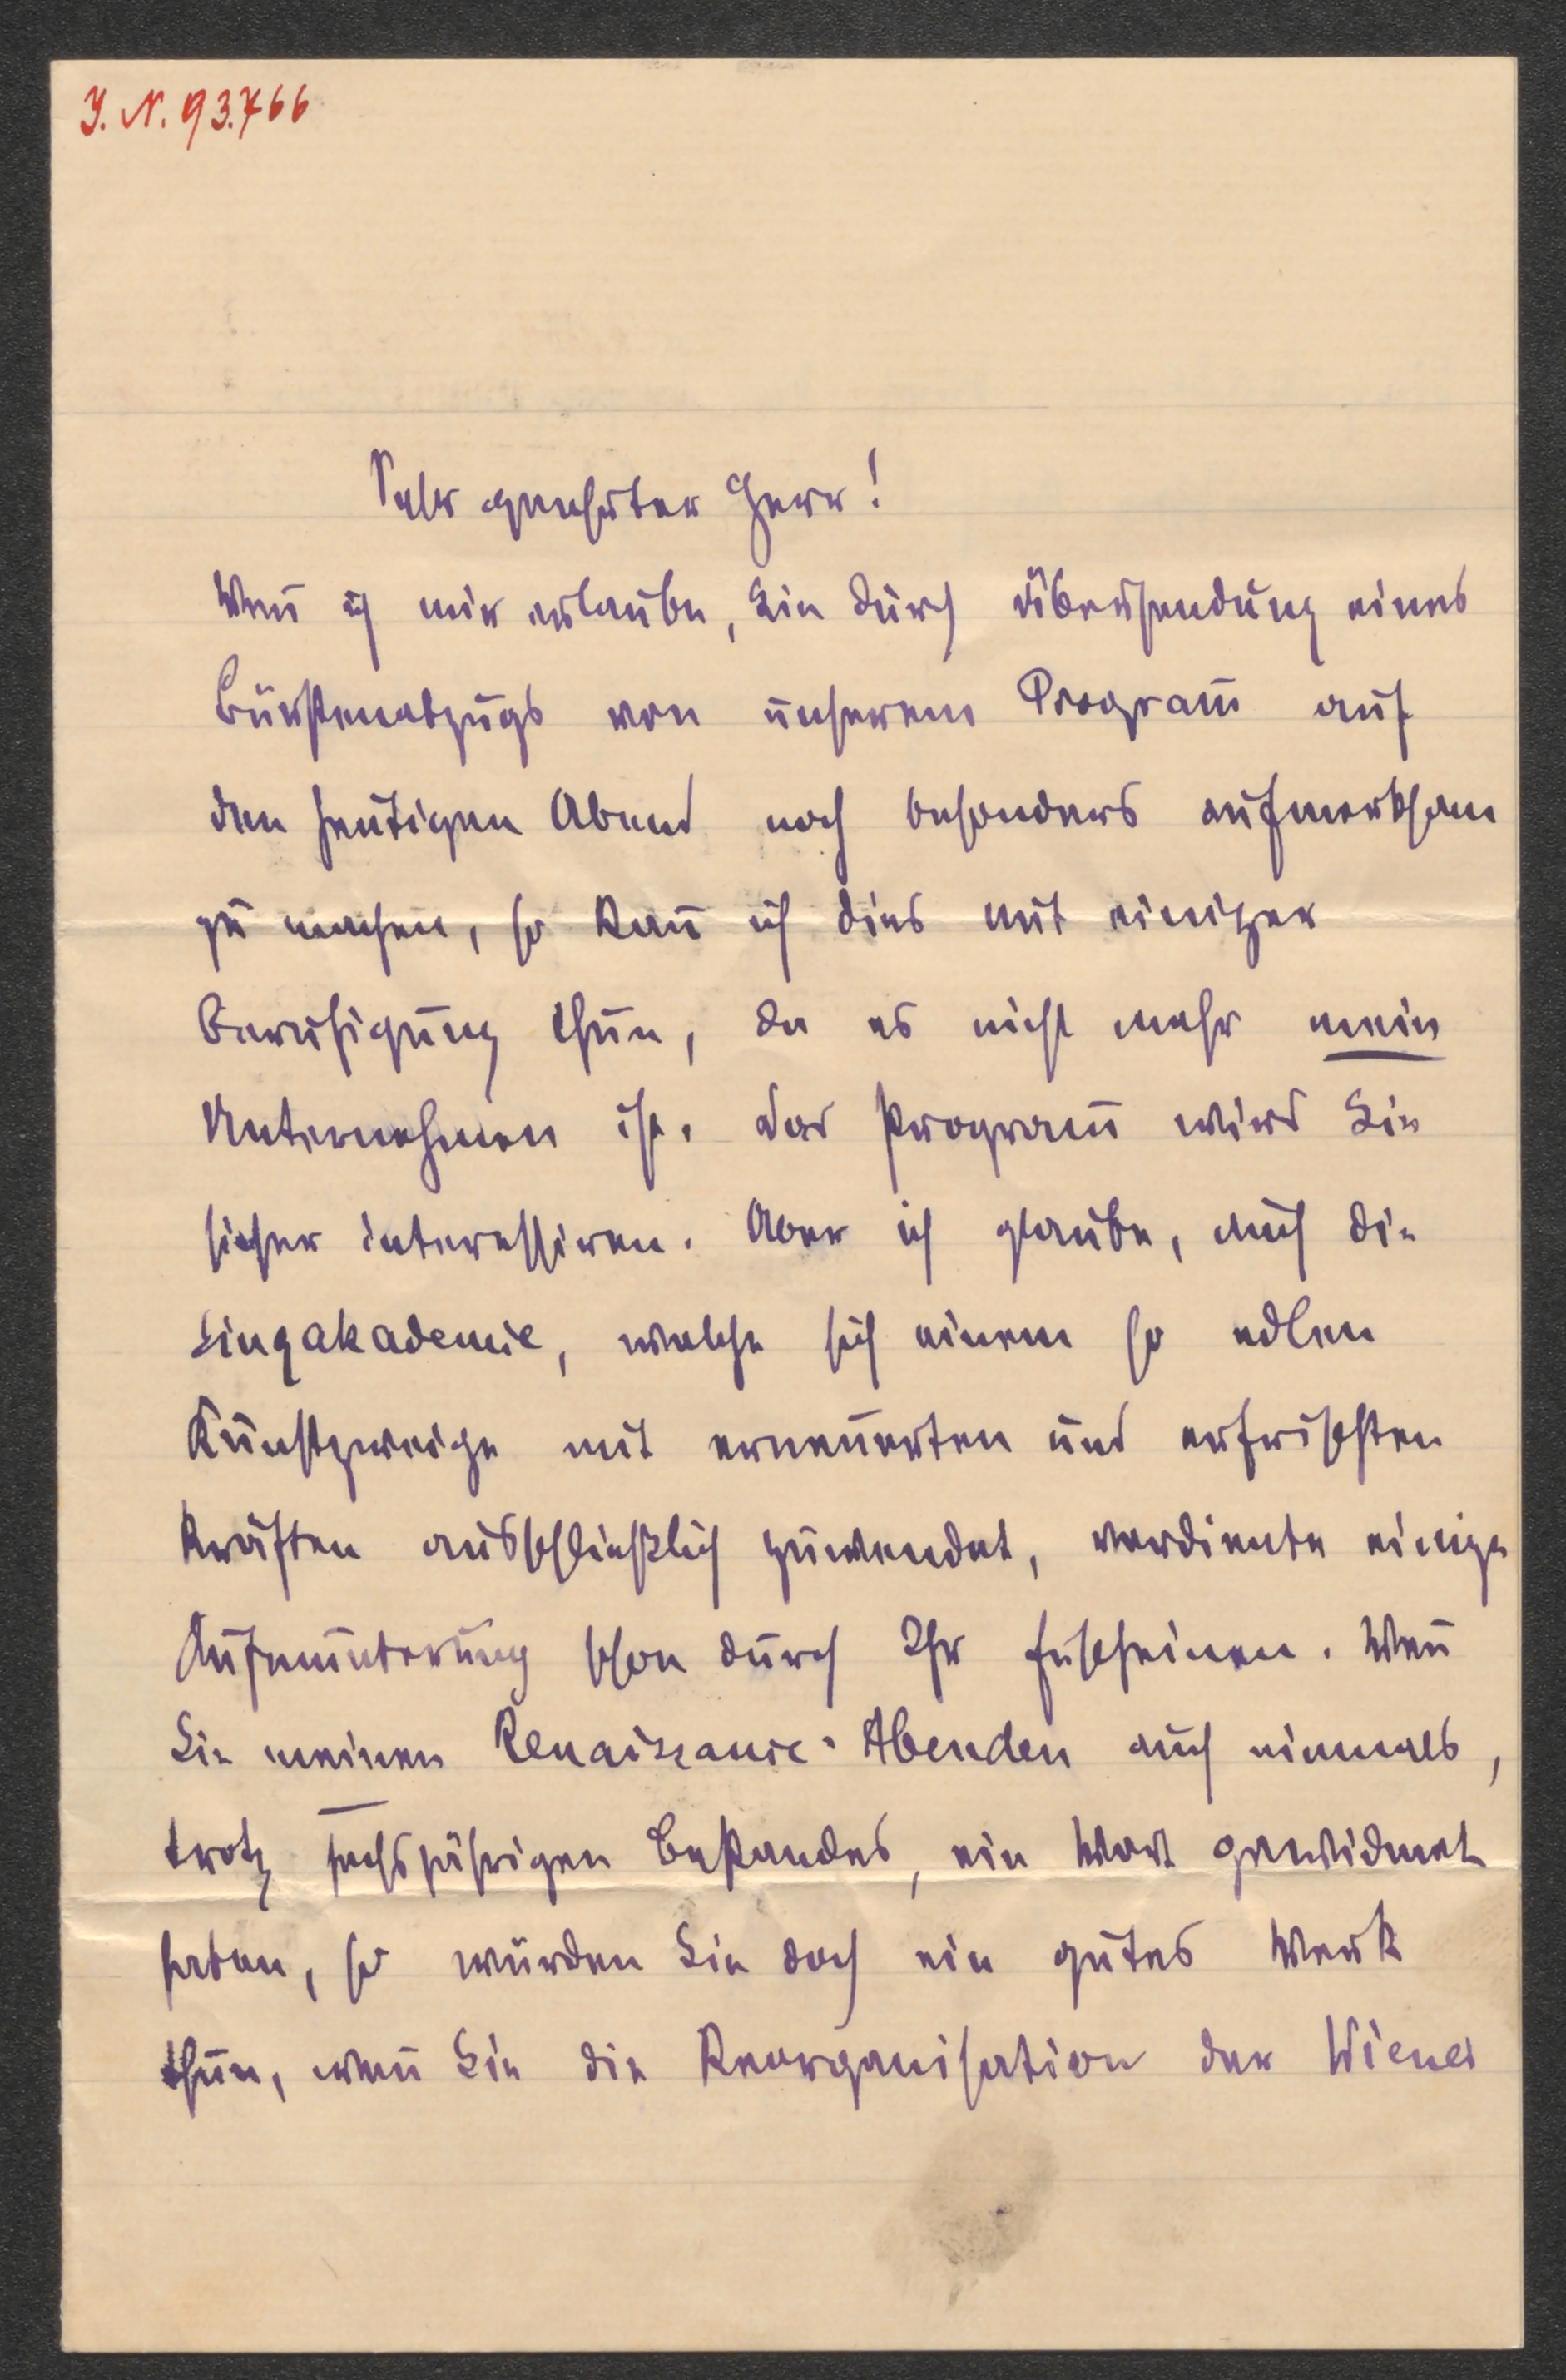 I. N. 93.766
Sehr geehrter Herr!
Wen̄ ich mir erlaube, Sie durch Übersendung eines
Bürstenabzugs von unserem Program̄ auf
den heutigen Abend noch besonders aufmerksam
zu machen, so kan̄ ich dies mit einiger
Beruhigung thun, da es nicht mehr mein
Unternehmen ist. Das Program̄ wird Sie
sicher interessiren. Aber ich glaube, auch die
Singakademie, welche sich einem so edlen
Kunstzweige mit erneuerten und erfrischten
Kräften ausschließlich zuwendet, verdiente einige
Aufmunterung schon durch Ihr Erscheinen. Wen̄
Sie meinen Renaissance-Abenden auch niemals,
trotz sechsjährigen Bestandes, ein Wort gewidmet
haben, so würden Sie doch ein gutes Werk
thun, wen̄ Sie die Reorganisation der Wiener